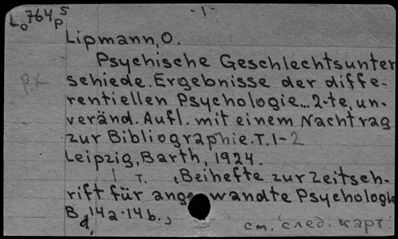 Lo764 P5
-1-
Lipmann, O.
Psychische Geschlechtsunter
schiede. Ergebnisse der diffe-
rentiellen Psychologie... 2-te, un-
veränd. Aufl. mit einem Nachtrag
zur Bibliographie. T. 1-2
Leipzig, Barth, 1924.
1 т. , Beihefte zur Zeitsch-
rift für angewandte Psychologie
Bd, 14a-14b.,
см. след. карт